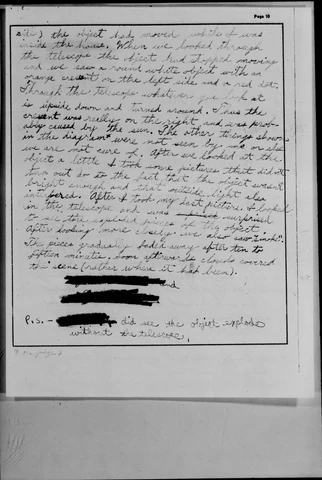 Page 10
side) the object had moved while I was
inside the house. When we looked through
the telescope the object had stopped moving
and we saw a round white object with an
orange cresent on the left side and a red dot.
Through the telescope whatever you look at
is upside down and turned around. Thus the
cresent was really on the right and was prob-
ably caused by the sun. The other things shown
in the diagram were not seen by me or else
we are not sure of. After we looked at the
object a little I took some pictures that did
turn out do to the fact that the object wasn't
bright enough and that outside light also
After I took my last picture, I looked
in the telescope and was surprised
to see the exploded pieces of the object.
After looking more closely we also saw
The pieces gradually faded away after ten to
fifteen minutes, soon afterwards clouds covered
the scene (rather where it had been).
and
P.S. - did see the object explode
without the telescope.